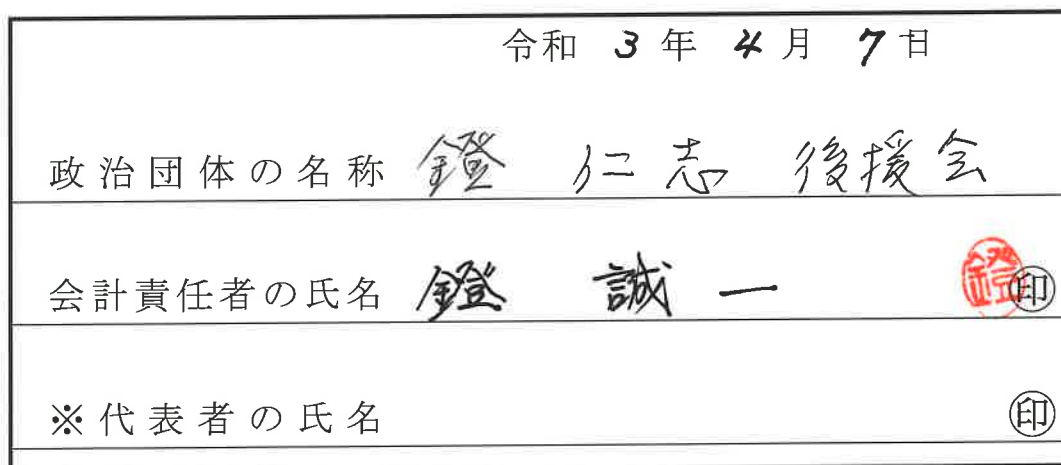 令和 3 年 4 月 7 日
政治団体の名称 鐙 仁志 後援会
会計責任者の氏名 鐙 誠一 鐙 ㊞
※代表者の氏名 ㊞